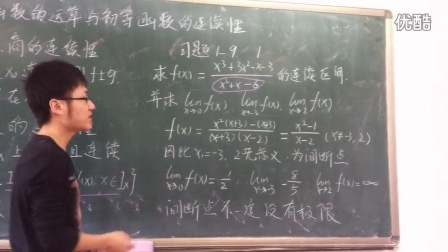 数的运算与初等函数的连续性
商的连续性
习题1-9 1
求f(x)=(x³+3x²-x-3)/(x²+x-6)的连续区间.
并求lim x→0 f(x), lim x→-3 f(x), lim x→2 f(x).
f(x)=(x²(x+3)-(x+3))/((x+3)(x-2))=(x²-1)/(x-2) (x≠-3,2)
因此x=-3,2无意义,为间断点
lim x→0 f(x)=1/2, lim x→-3 =-8/5 lim x→2 f(x)=∞
间断点不一定没有极限
f±g,
在
的
上 且连续
x∈Ix}
优酷